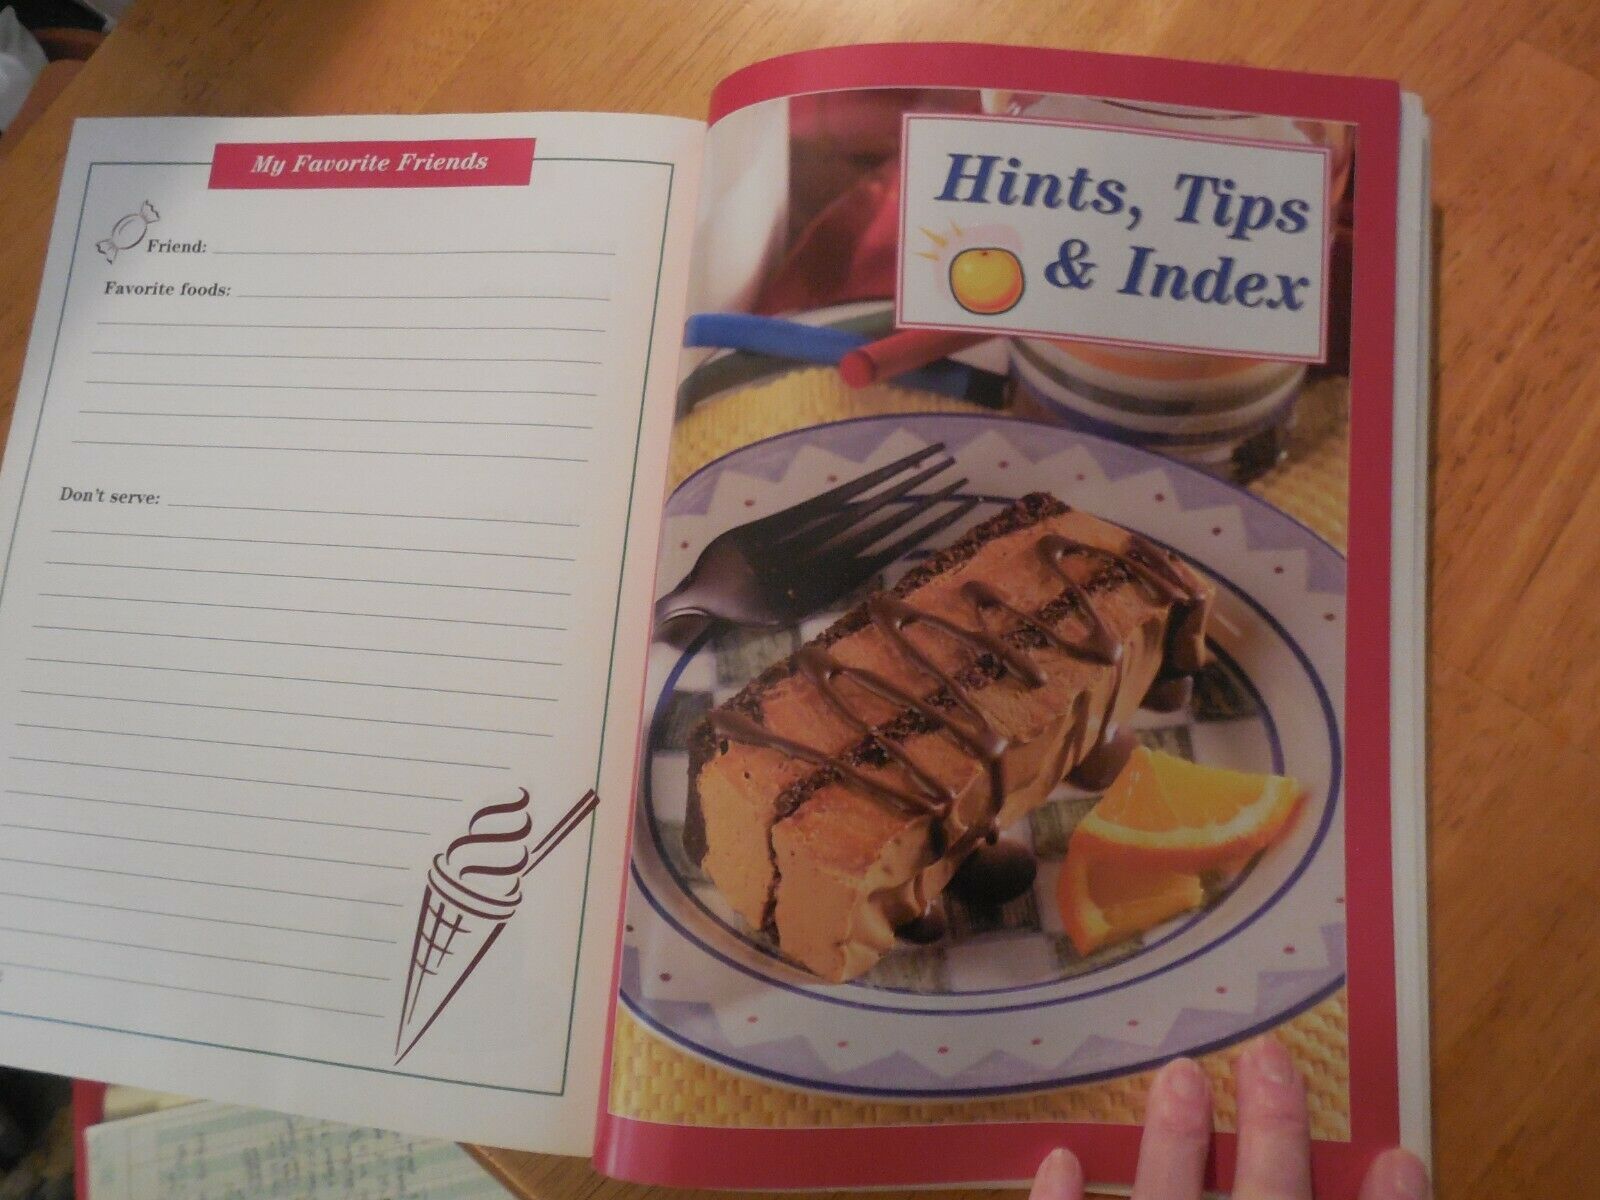 My Favorite Friends
Friend:
Favorite foods:
Don't serve:
Hints, Tips
& Index